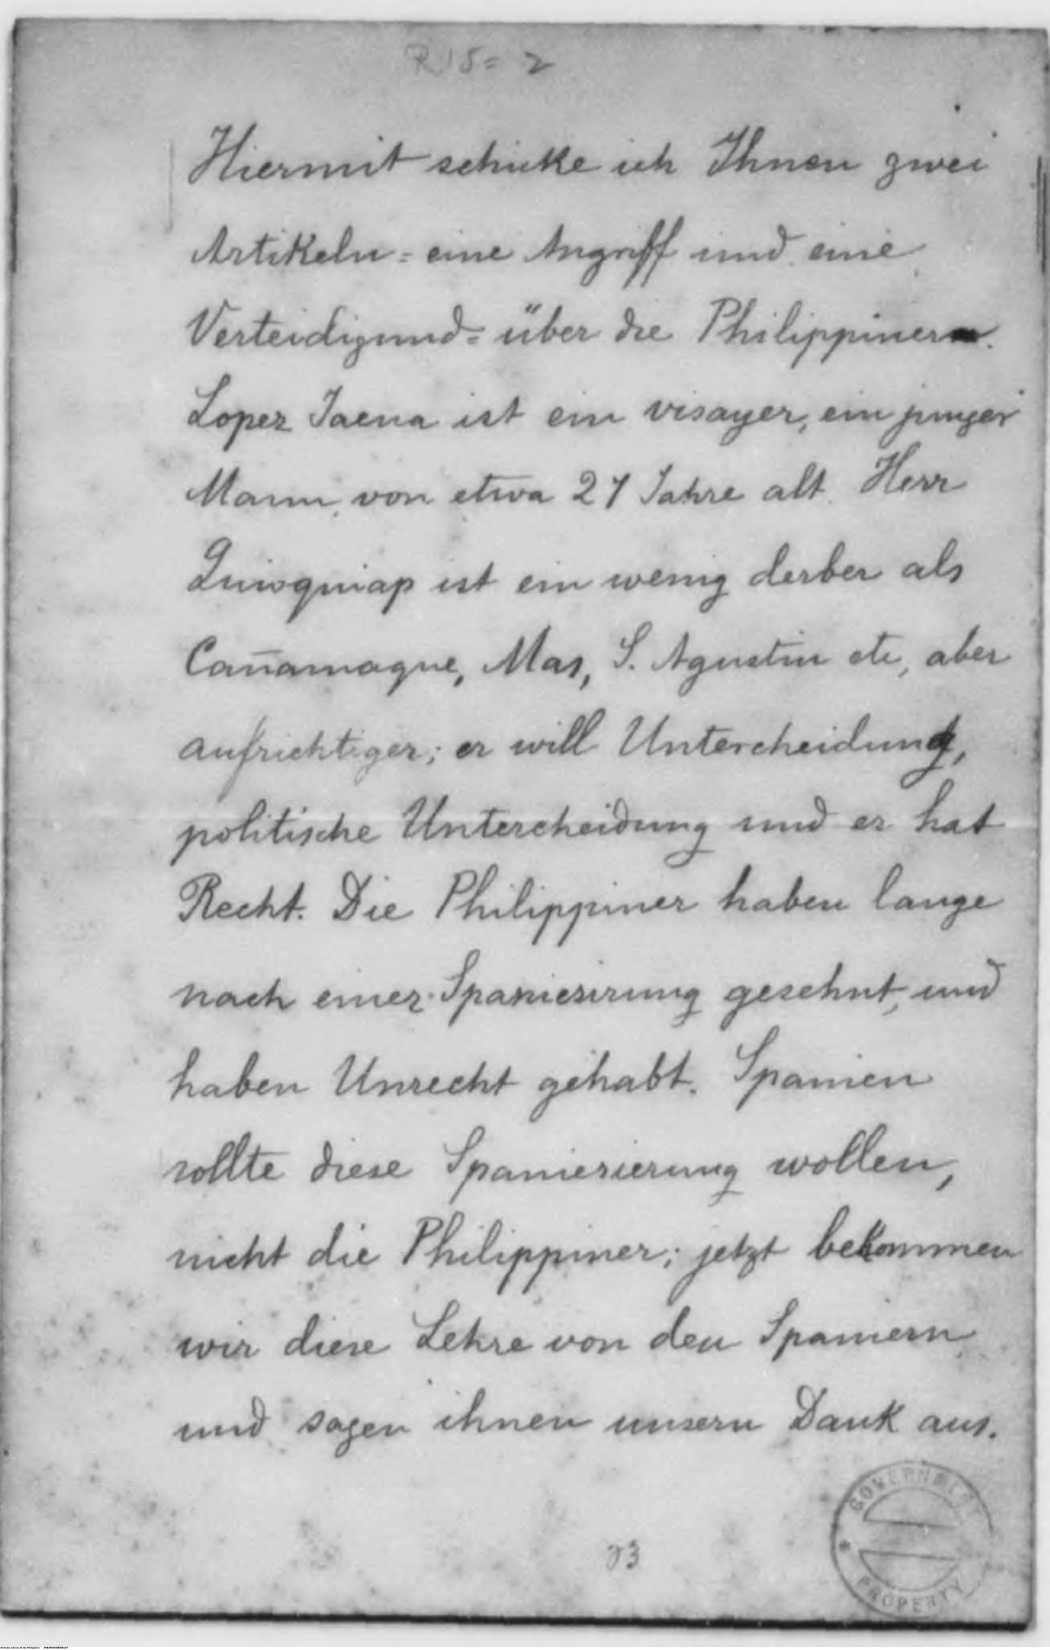 R15=2
Hiermit schicke ich Ihnen zwei
Artikeln = eine Angriff und eine
Verteidigund = über die Philippiner.
Lopez Jaena ist ein visayer, ein junger
Mann, von etwa 27 Jahre alt. Herr
Quioquiap ist ein wenig derber als
Cañamaque, Mas, S. Agustin etc, aber
aufrichtiger; er will Untercheidung,
politische Untercheidung und er hat
Recht. Die Philippiner haben lange
nach einer Spaniesirung gesehnt, und
haben Unrecht gehabt. Spanien
sollte diese Spaniesierung wollen,
nicht die Philippiner; jetzt bekommen
wir diese Lehre von den Spaniern
und sagen ihnen unsern Dank aus.
GOVERNMENT
PROPERTY